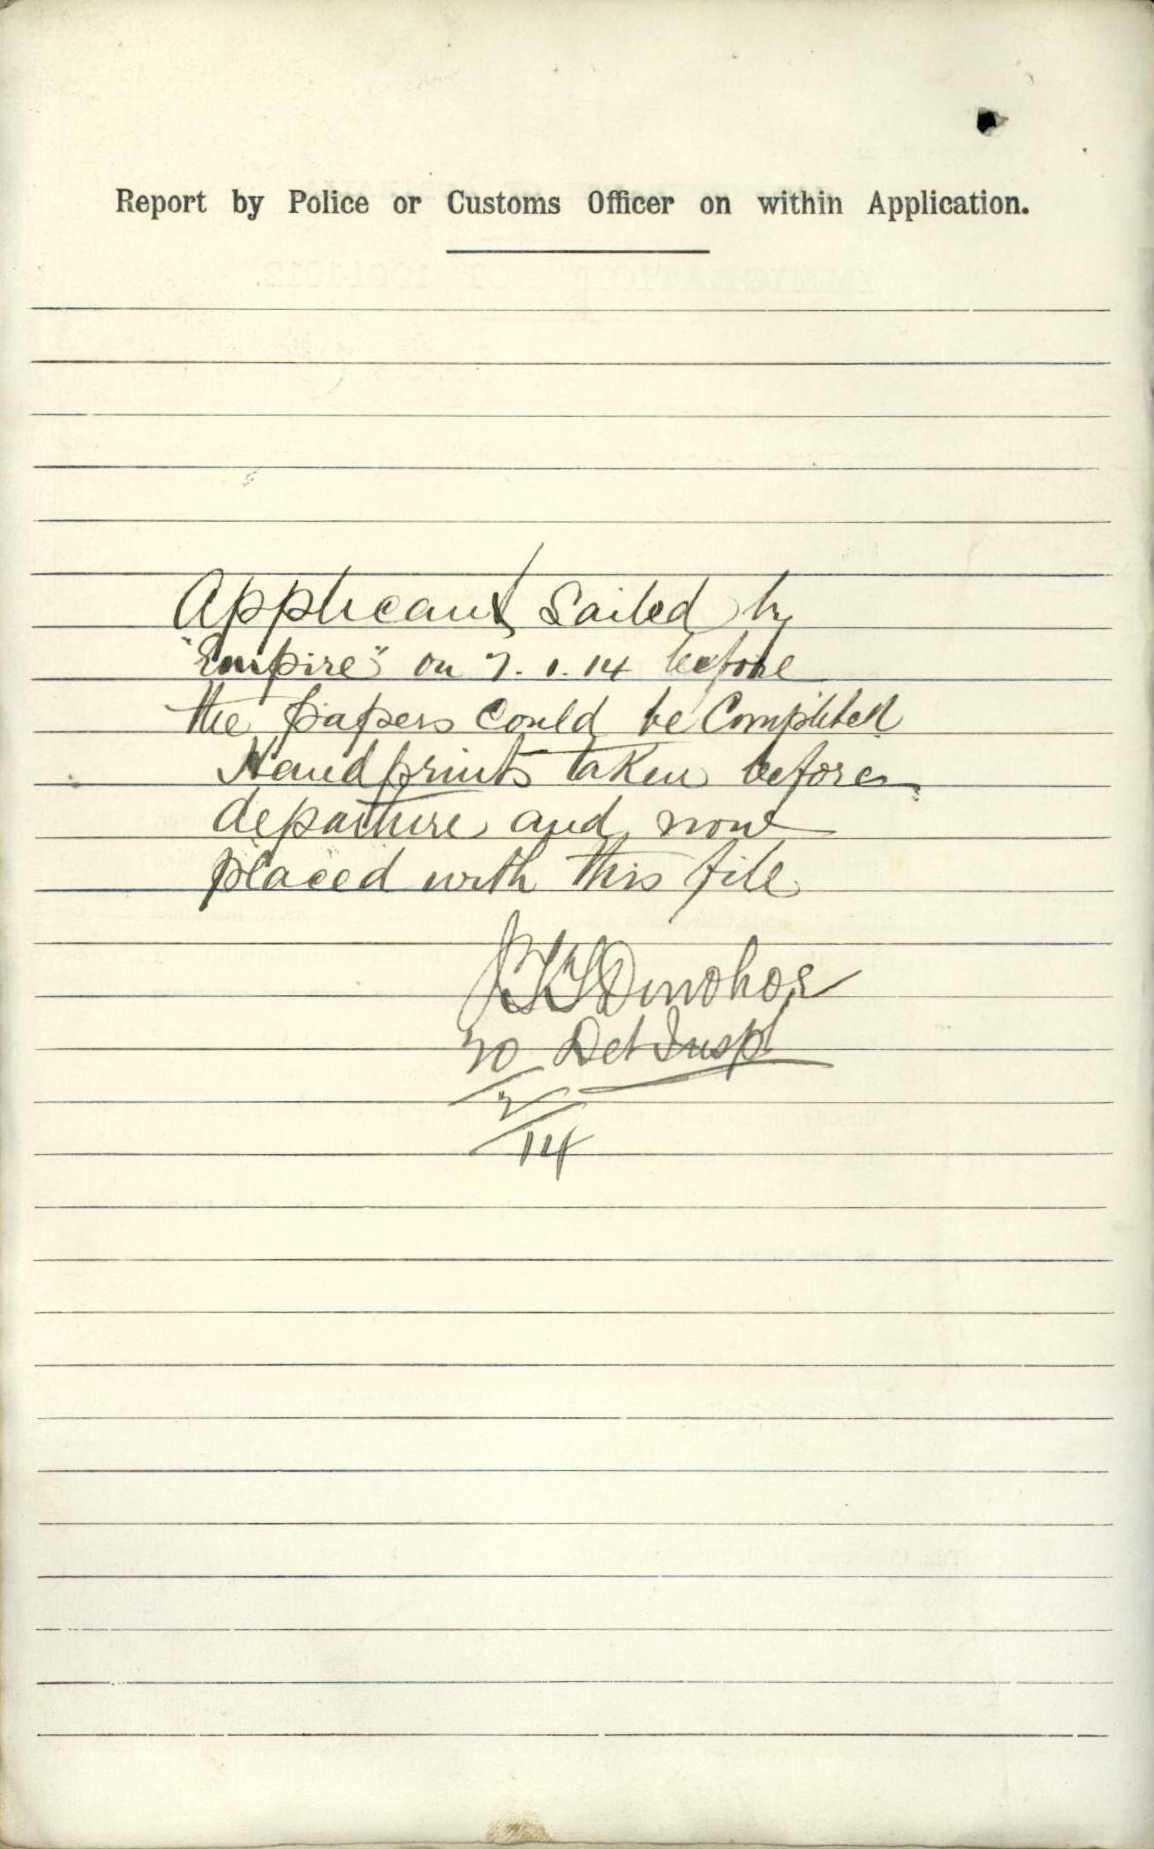 Report by Police or Customs Officer on within Application.
Applicant Sailed by
"Empire" on 7. 1. 14 before
the papers could be Completed
Handprints taken before
departure and now
placed with this file
Donohoe
20 Det Inspr
2
14